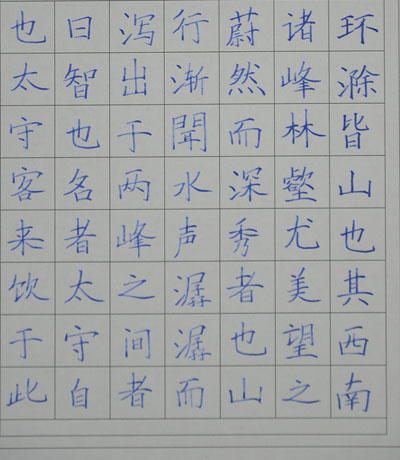 环滁皆山也其西南
诸峰林壑尤美望之
蔚然而深秀者也山
行渐聞水声潺潺而
泻出于两峰之间者
曰智也名者太守自
也太守客来饮于此